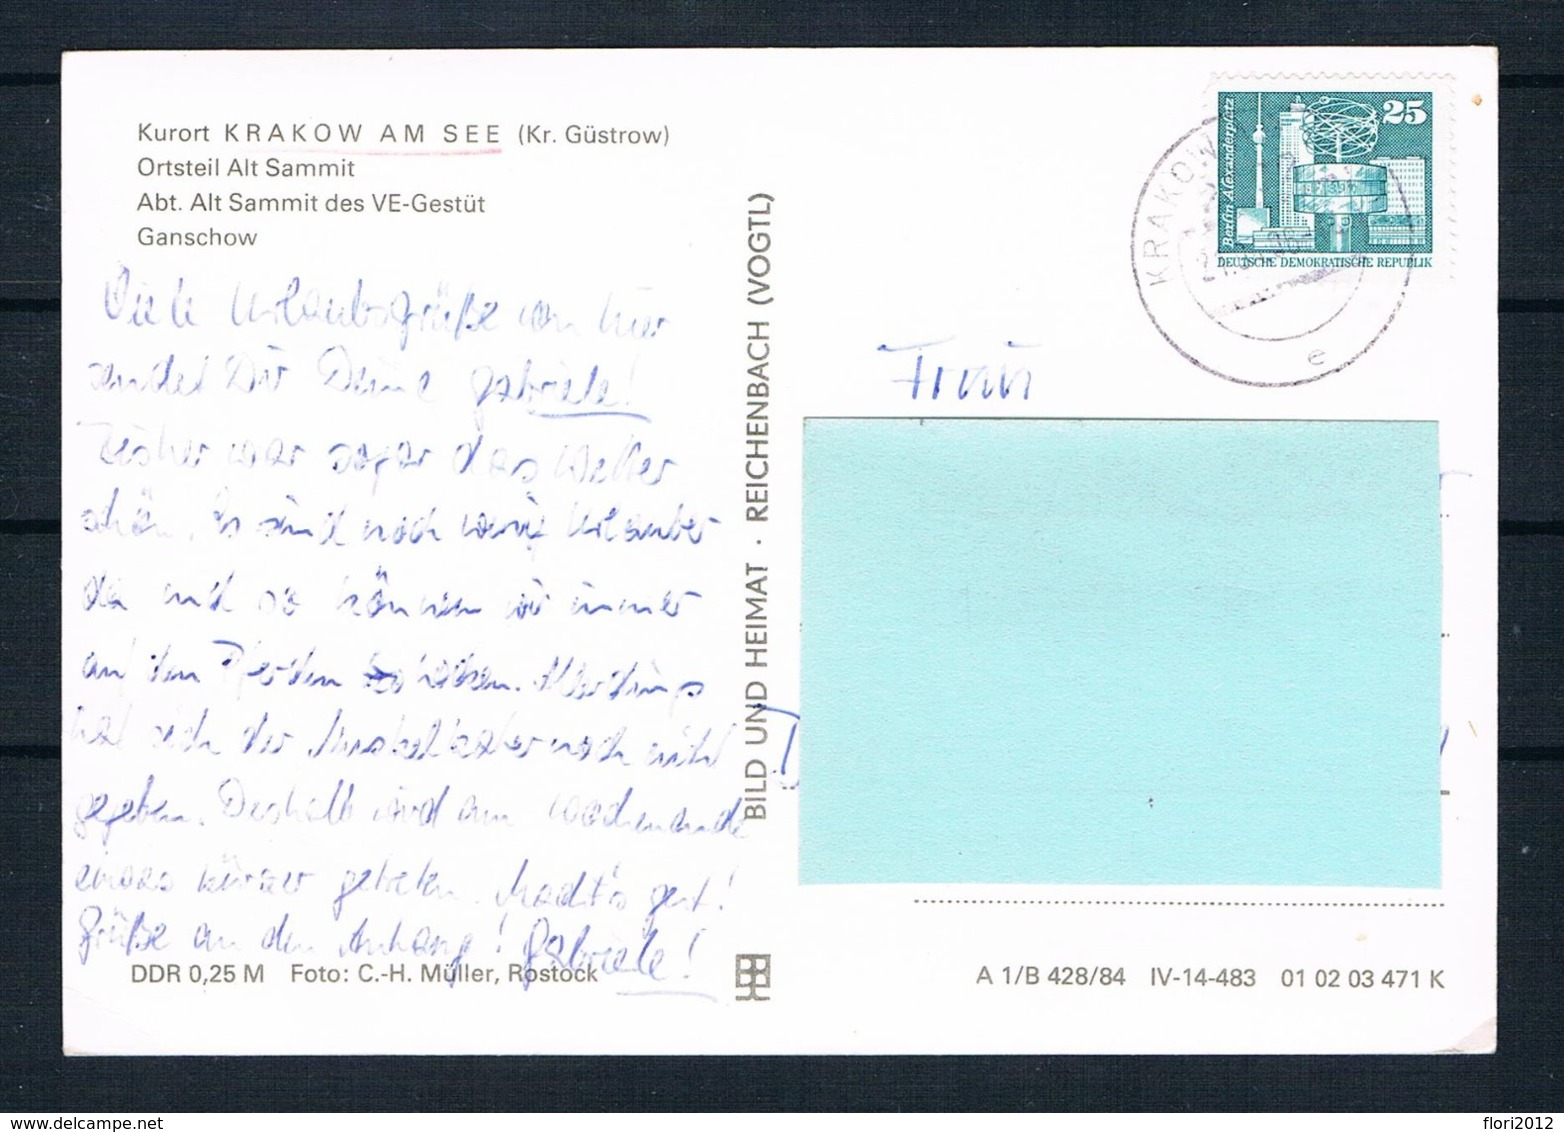 Kurort KRAKOW AM SEE (Kr. Güstrow)
Ortsteil Alt Sammit
Abt. Alt Sammit des VE-Gestüt
Ganschow
Viele Urlaubsgrüße von hier
sendet Dir Deine Gabriele!
Bisher war sogar das Wetter
schön. Es sind noch wenig Urlauber
da und so können wir immer
auf den Pferden hocken. Allerdings
hat sich der Muskelkater noch nicht
gegeben. Deshalb wird am Wochenende
etwas kürzer getreten. Macht's gut!
Grüße an den Anhang! Gabriele!
DDR 0,25 M Foto: C.-H. Müller, Rostock
BILD UND HEIMAT · REICHENBACH (VOGTL)
25
Berlin Alexanderplatz
DEUTSCHE DEMOKRATISCHE REPUBLIK
KRAKOW
e
Frau
A 1/B 428/84 IV-14-483 01 02 03 471 K
flori2012